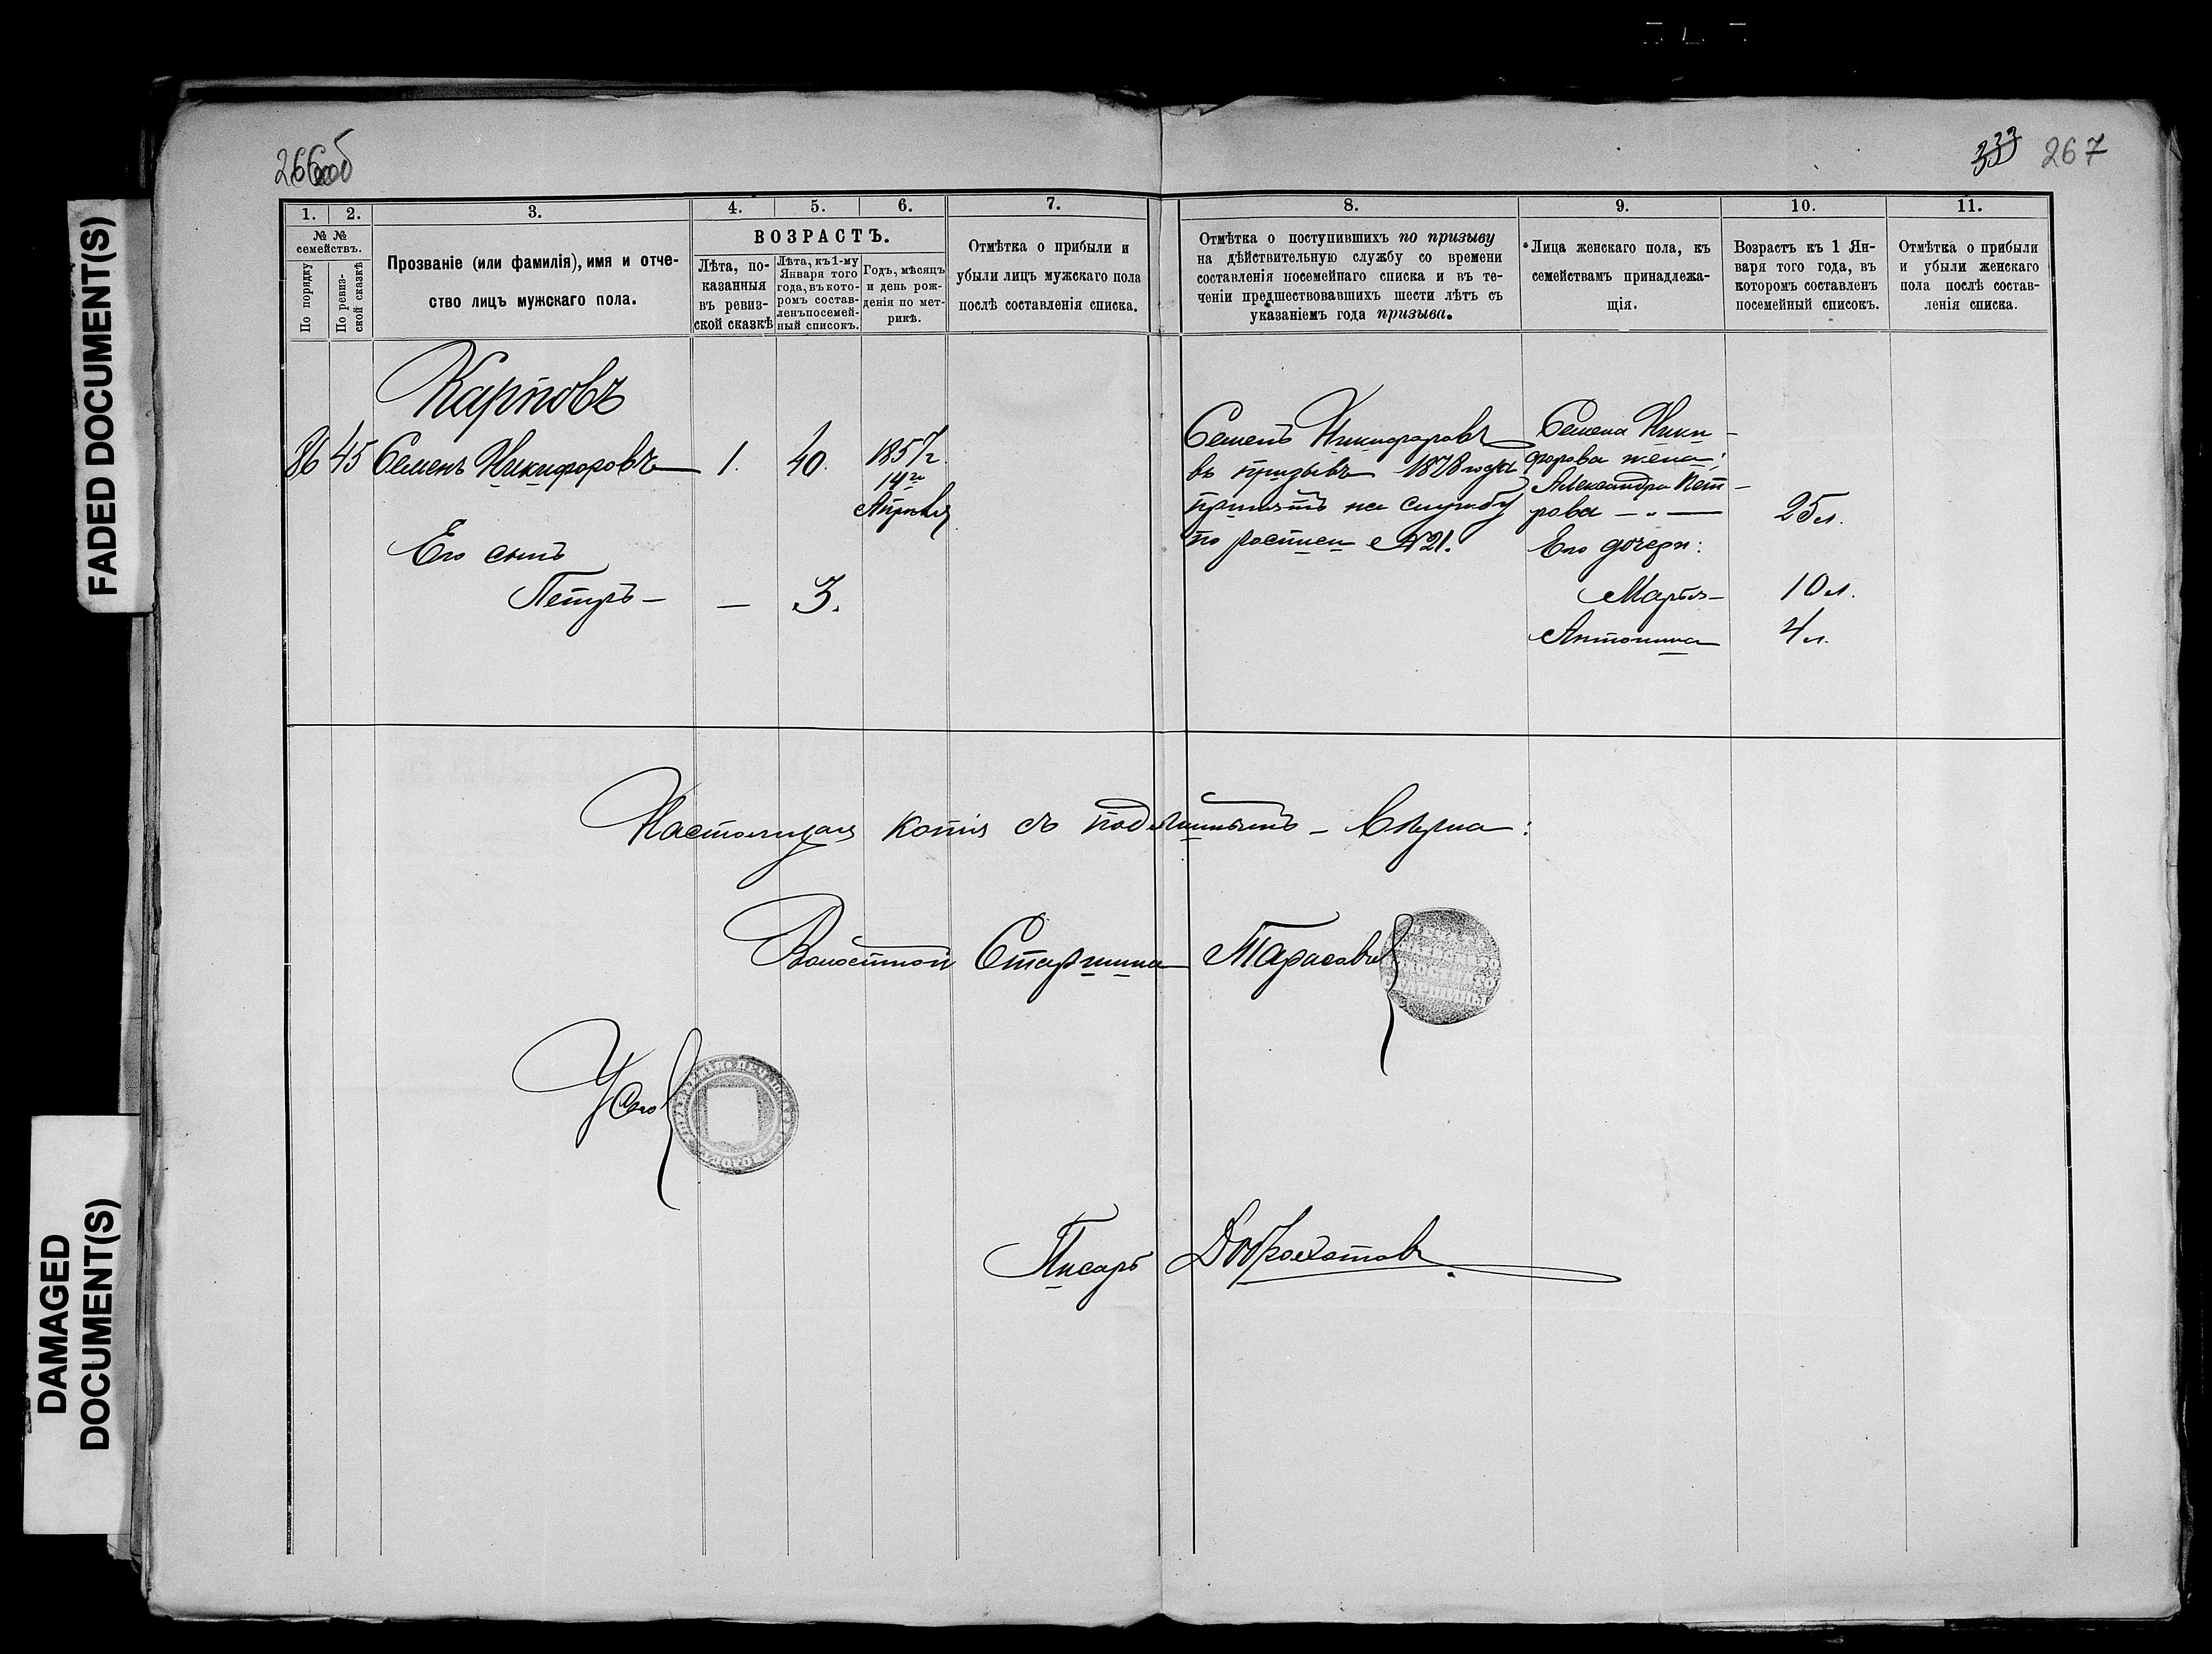 FADED DOCUMENT(S)
DAMAGED
DOCUMENT(S)
266об
333 267
1. 2. 3. 4. 5. 6. 7. 8. 9. 10. 11.
№ №
семействъ.
По порядку
По ревиз-
ской сказкѣ
Прозваніе (или фамилія), имя и отче-
ство лицъ мужскаго пола.
ВОЗРАСТЪ.
Лѣта, по-
казанныя
въ ревиз-
ской сказкѣ
Лѣта, къ 1-му
Января того
года, въ кото-
ромъ состав-
ленъ посемей-
ный списокъ.
Годъ, мѣсяцъ
и день рож-
денія по мет-
рикѣ.
Отмѣтка о прибыли и
убыли лицъ мужскаго пола
послѣ составленія списка.
Отмѣтка о поступившихъ по призыву
на дѣйствительную службу со времени
составленія посемейнаго списка и въ те-
ченіи предшествовавшихъ шести лѣтъ съ
указаніемъ года призыва.
Лица женскаго пола, къ
семействамъ принадлежа-
щія.
Возрастъ къ 1 Ян-
варя того года, въ
которомъ составленъ
посемейный списокъ.
Отмѣтка о прибыли
и убыли женскаго
пола послѣ состав-
ленія списка.
Карповъ
86 45 Семенъ Никифоровъ 1. 40. 1857 г.
14го
Апрѣля
Его сынъ
Петръ — — 3.
Семенъ Никифоровъ
въ призывъ 1878 года
принятъ на службу
по росписи №21.
Семена Ники-
форова жена:
Александра Пет-
рова — „ — 25 л.
Его дочери:
Марья — 10 л.
Антонина 4 л.
Настоящая копія съ подлиннымъ — вѣрна:
Волостной Старшина Тарасовъ
СТАРШИНЫ
Писарь Доброхотовъ.